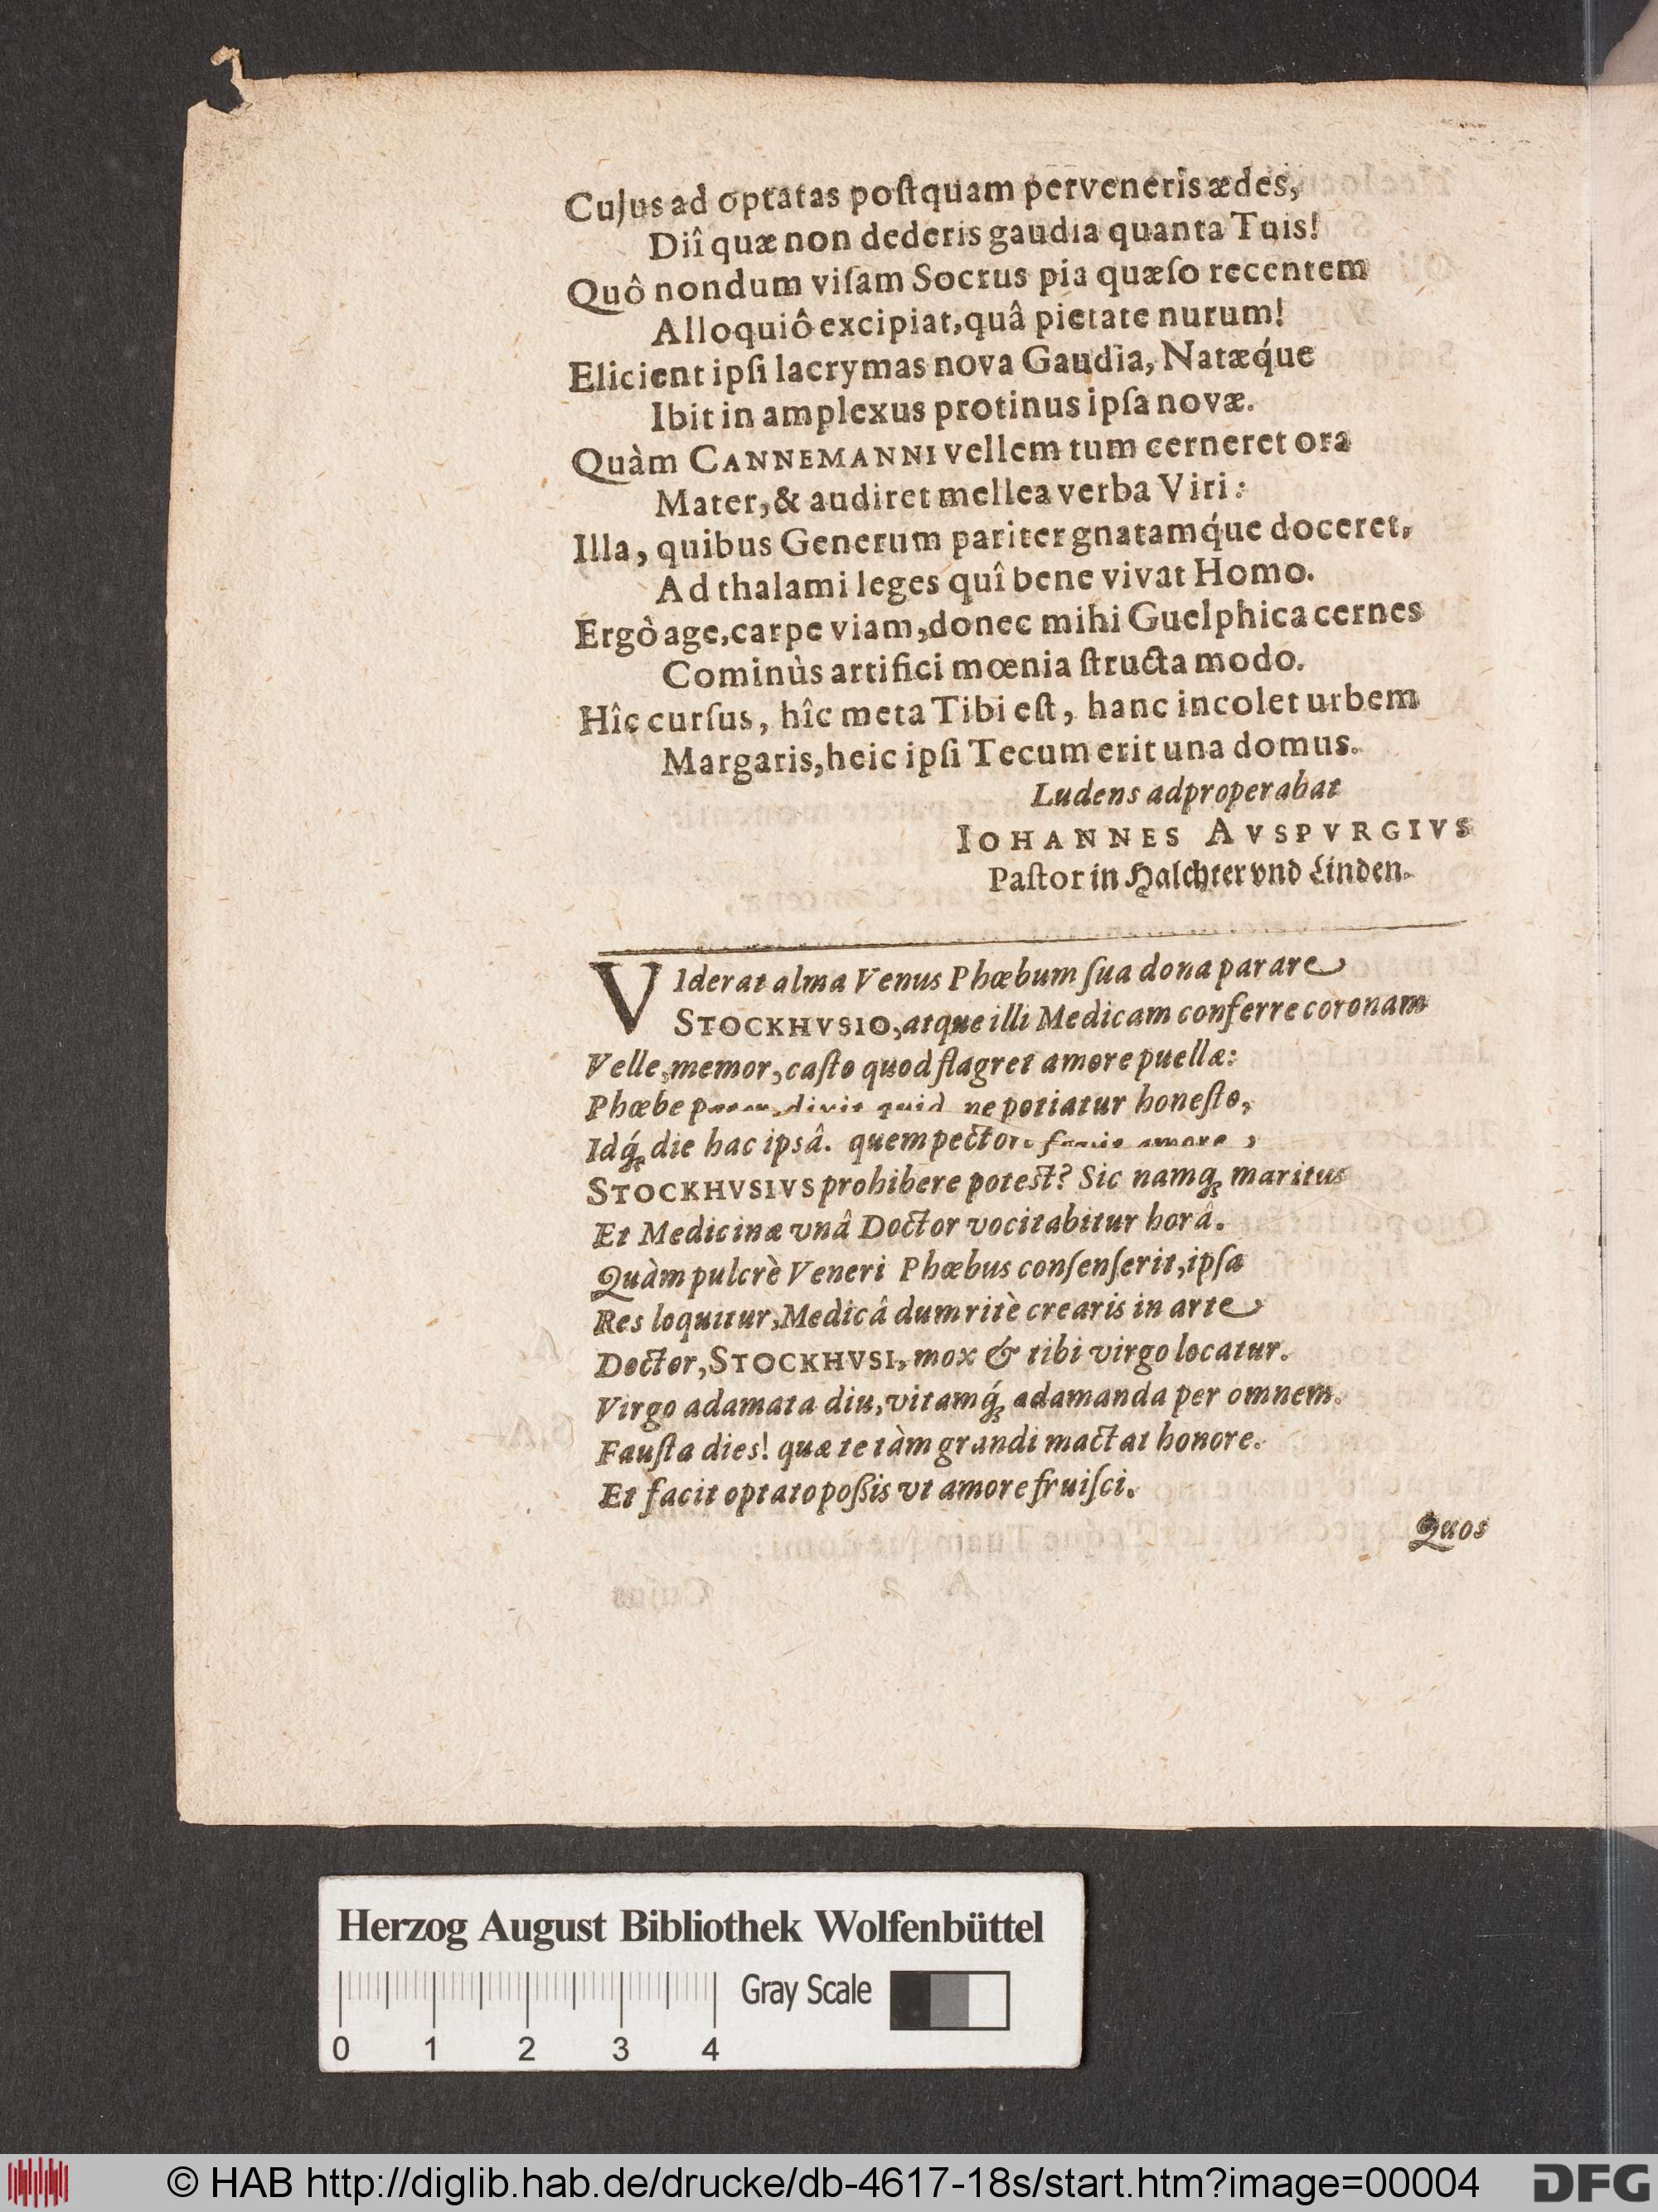 Cujus ad optatas poſtquam perveneris ædes,
Diî quæ non dederis gaudia quanta Tuis!
Quô nondum viſam Socrus pia quæſo recentem
Alloquiô excipiat, quâ pietate nurum!
Elicient ipſi lacrymas nova Gaudia, Natæq́ue
Ibit in amplexus protinus ipſa novæ.
Quàm CANNEMANNI vellem tum cerneret ora
Mater, & audiret mellea verba Viri:
Illa, quibus Generum pariter gnatamq́ue doceret,
Ad thalami leges quî bene vivat Homo.
Ergò age, carpe viam, donec mihi Guelphica cernes
Cominùs artifici mœnia ſtructa modo.
Hîc curſus, hîc meta Tibi eſt, hanc incolet urbem
Margaris, heic ipſi Tecum erit una domus.
Ludens adproperabat
IOHANNES AVSPVRGIVS
Paſtor in Halchter vnd Linden.
VIderat alma Venus Phœbum ſua dona parare
STOCKHVSIO, atque illi Medicam conferre coronam
Velle, memor, caſto quod flagret amore puellæ:
Phœbe dixit quid ne potiatur honeſto,
Idq́ꝫ die hac ipsâ. quem pectore amore,
STOCKHVSIVS prohibere potest? Sic namqꝫ maritus
Et Medicinæ vnâ Doctor vocitabitur horâ.
Quàm pulcrè Veneri Phœbus conſenſerit, ipſa
Res loquitur, Medicâ dum ritè crearis in arte
Doctor, STOCKHVSI, mox & tibi virgo locatur.
Virgo adamata diu, vitamq́ꝫ adamanda per omnem.
Fauſta dies! quæ te tàm grandi mactat honore.
Et facit optato poſsis vt amore fruiſci.
Quos
Herzog August Bibliothek Wolfenbüttel
Gray Scale
0 1 2 3 4
© HAB http://diglib.hab.de/drucke/db-4617-18s/start.htm?image=00004
DFG